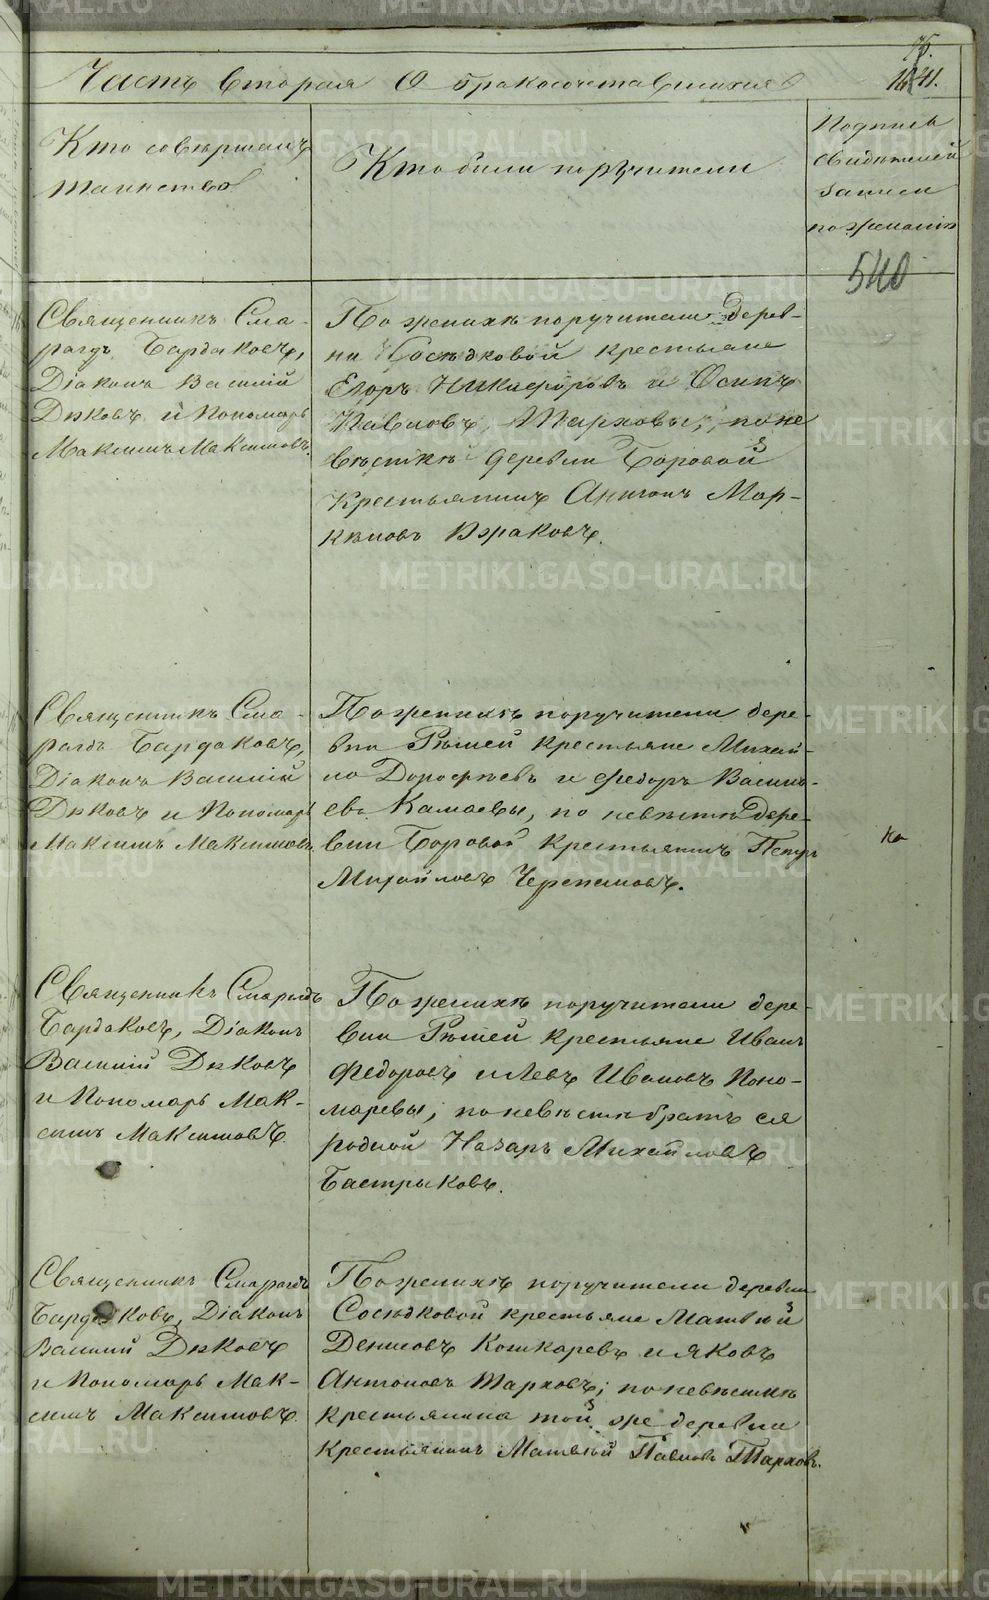 Часть вторая О бракосочетавшихся
Кто совершалъ
таинство
Кто были поручители
Подпись
свидетелей
записи
по желанію
540
Священникъ Сма-
рагдъ Бардаковъ,
Діаконъ Василій
Дьковъ и Пономарь
Максимъ Максимовъ.
По женихѣ поручители дерев-
ни Сосѣдковой крестьяне
Егоръ Никифоровъ и Осипъ
Павловъ Тарховы; по не
вѣсткѣ деревни Боровой
Крестьянинъ Антонъ Мар-
Священникъ Сма-
рагдъ Бардаковъ,
Діаконъ Василій
Дьковъ и Пономарь
Максимъ Максимовъ.
По женихѣ поручители дере-
вни Рѣшей крестьяне Михай-
ло Дорофѣевъ и Федоръ Василь-
евъ Камаевы, по невѣсткѣ дере-
вни Боровой крестьянинъ Петръ
Михайловъ Черепановъ.
Священникъ Смарагдъ
Бардаковъ, Діаконъ
Василій Дьковъ
и Пономарь Мак-
симъ Максимовъ.
По женихѣ поручители дере-
вни Рѣшей крестьяне Иванъ
Федоровъ и Левъ Ивановъ Поно-
маревы; по невѣсткѣ братъ ея
родной Назаръ Михайловъ
Бастрыковъ.
Священникъ Смарагдъ
Бардаковъ, Діаконъ
Василій Дьковъ
и Пономарь Мак-
симъ Максимовъ.
По женихѣ поручители деревни
Сосѣдковой крестьяне Матвѣй
Денисовъ Кошкаревъ и Яковъ
Антоновъ Тарховъ; по невѣсткѣ
крестьянина той же деревни
крестьянинъ Матвѣй Павловъ Тарховъ.
METRIKI.GASO-URAL.RU